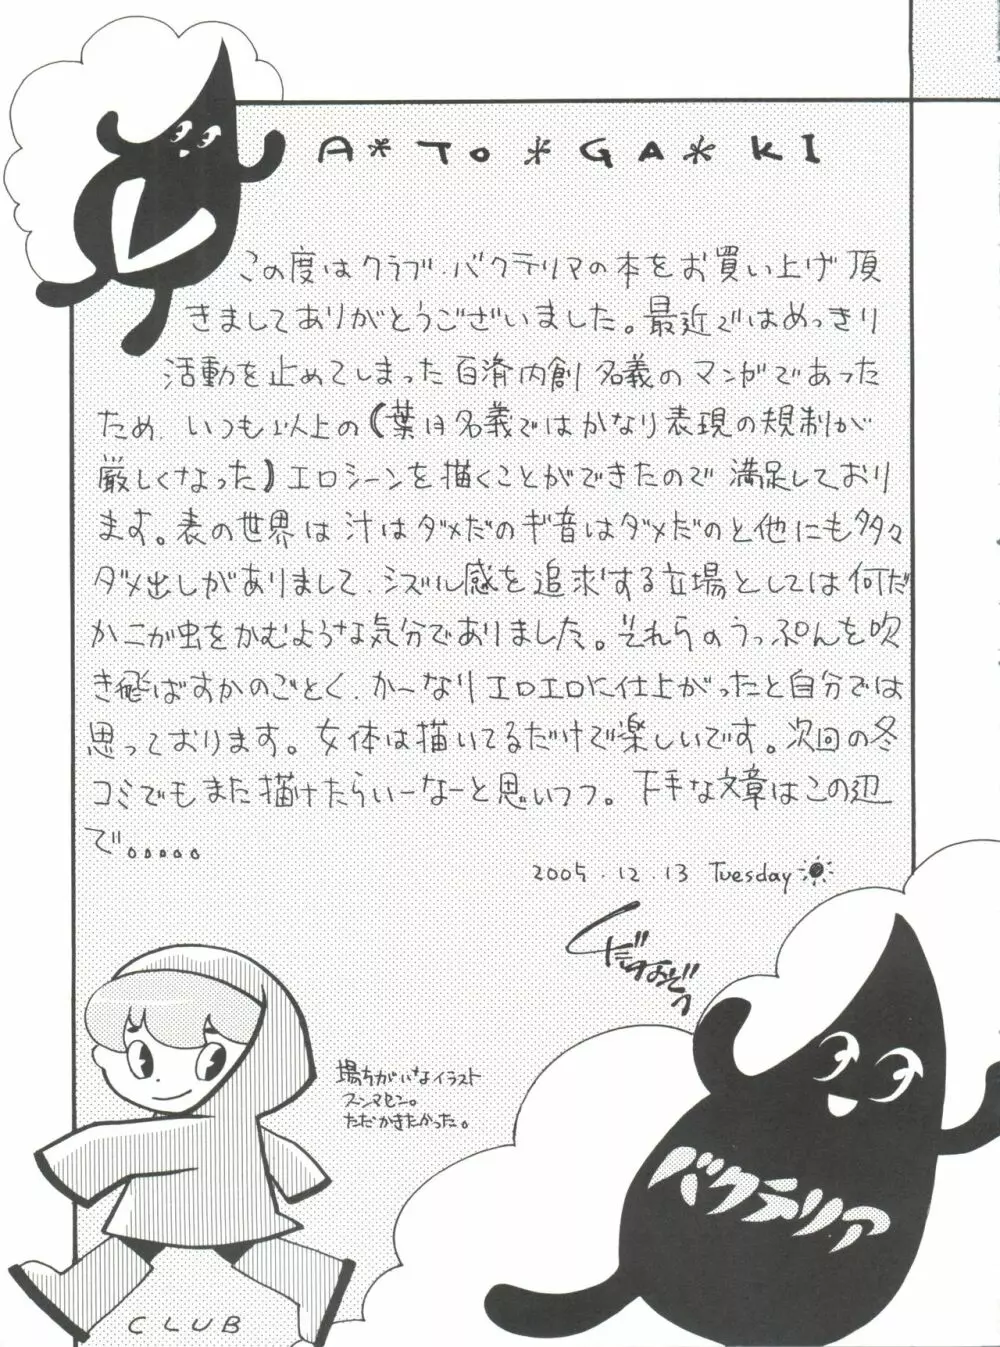 A*TO*GA*KI
この度はクラブ・バクテリアの本をお買い上げ頂
きましてありがとうございました。最近ではめっきり
活動を止めてしまった百済内創名義のマンガであった
ため、いつも以上の(葉月名義ではかなり表現の規制が
厳しくなった)エロシーンを描くことができたので満足しており
ます。表の世界は汁はダメだのギ音はダメだのと他にも多々
ダメ出しがありまして、シズル感を追求する立場としては何だ
かニが虫をかむような気分でありました。それらのうっぷんを吹
き飛ばすかのごとく、かーなりエロエロに仕上がったと自分では
思っております。女体は描いてるだけで楽しいです。次回の冬
コミでもまた描けたらいーなーと思いつつ。下手な文章はこの辺
で。。。。。
2005.12.13 Tuesday
場ちがいなイラスト
スンマセン。
ただかきたかった。
バクテリア
CLUB